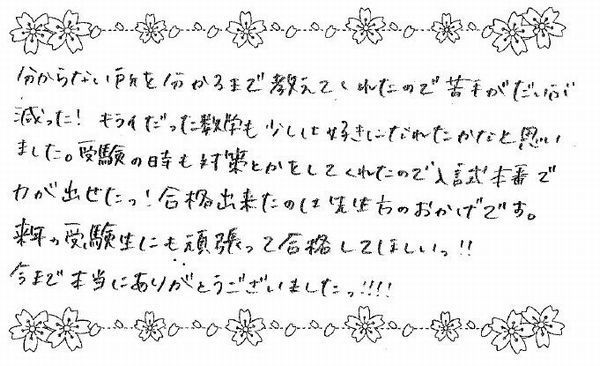 分からない所を分かるまで教えてくれたので苦手がだいぶ
減った！キライだった数学も少しは好きになれたかなと思い
ました。受験の時も対策とかをしてくれたので入試本番で
力が出せたっ！合格出来たのは先生方のおかげです。
来年の受験生にも頑張って合格してほしいっ！！
今まで本当にありがとうございましたっ！！！！